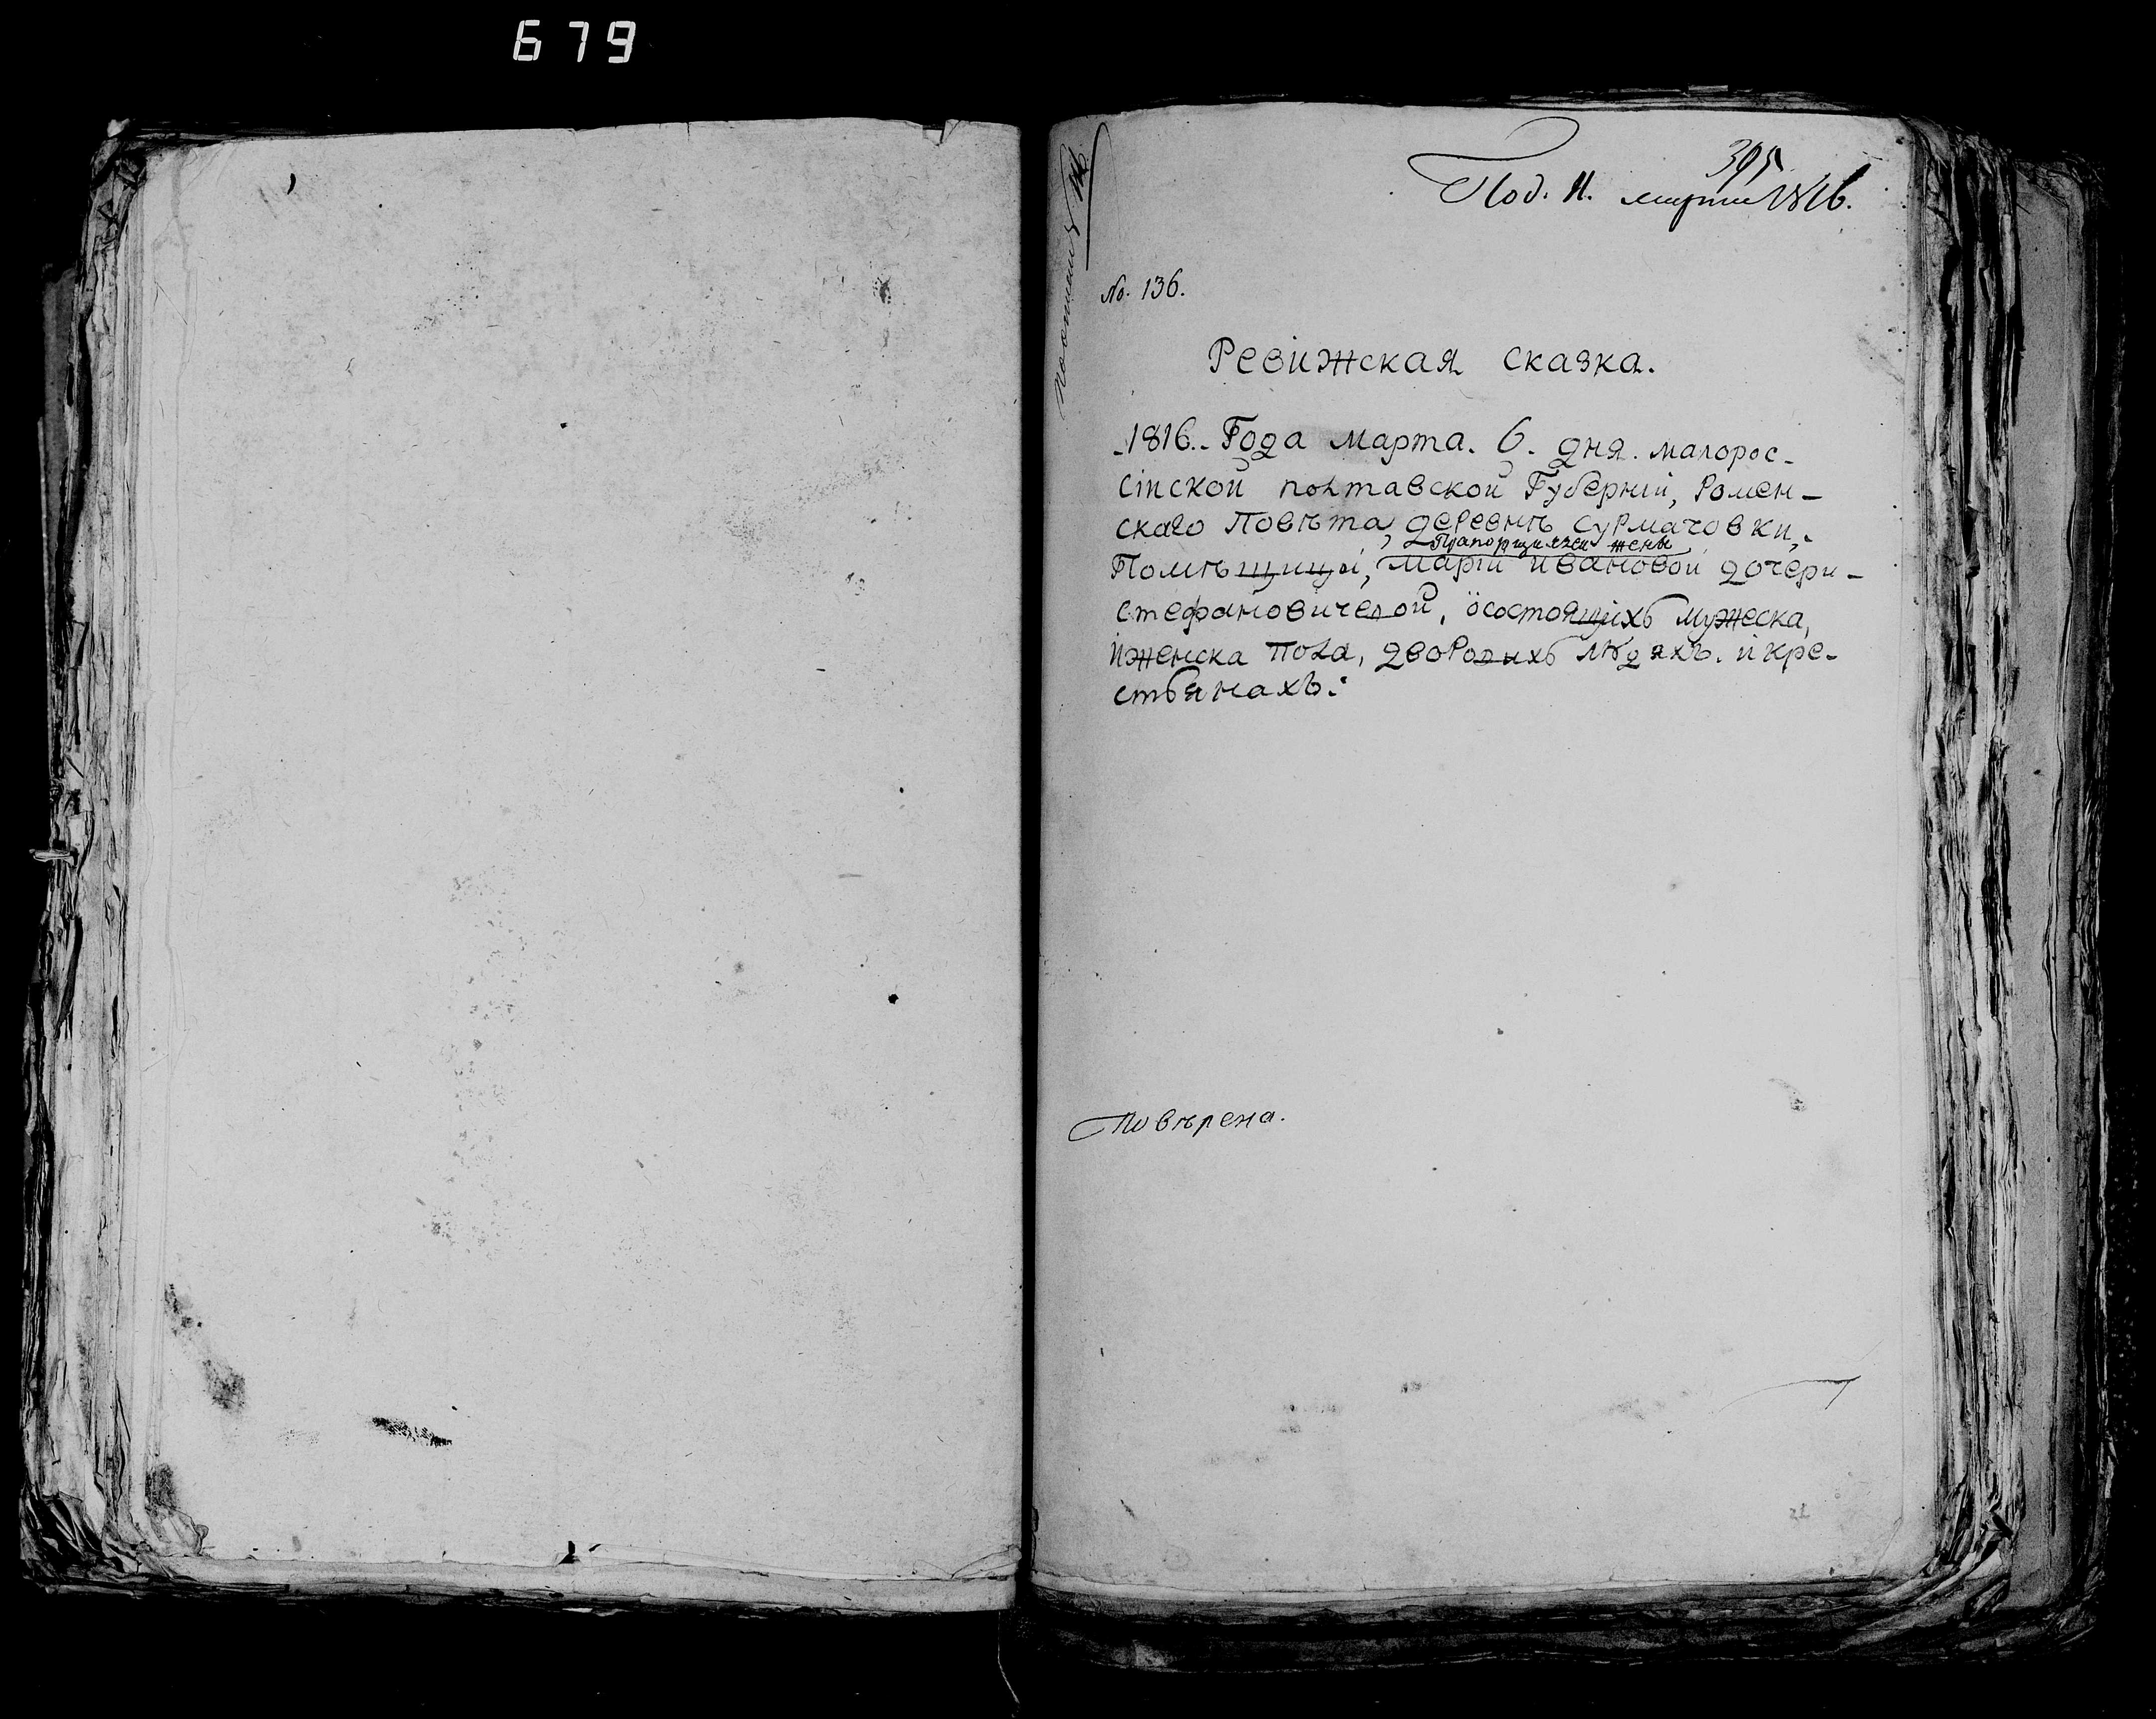 679
395
Под. 11. марта 1816.
No. 136.
Ревижская сказка.
1816. Года марта. 6. дня. малорос-
сійской полтавской Губерніи, Ромен-
скаго Повѣта, деревнѣ Сурмачовки,
Прапорщичей жены
Помѣщицы, Маріи Ивановой дочери
Стефановичевой, о состоящихъ мужеска,
и женска пола, дворовыхъ людяхъ. и кре-
стьянахъ:
Повѣрена.